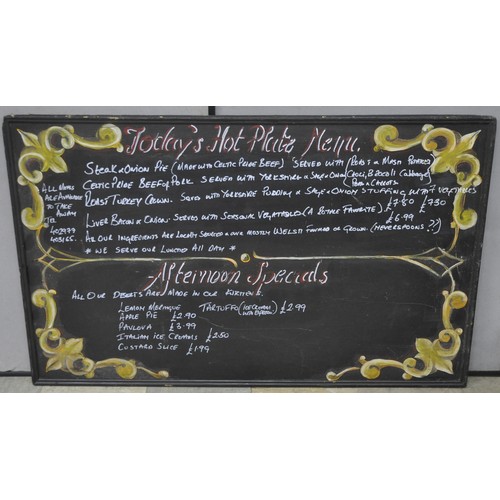 Today's Hot Plate Menu.
STEAK & ONION PIE (MADE WITH CELTIC PRIDE BEEF) SERVED WITH ROAST & MASH POTATOES
CELTIC PRIDE BEEF & PORK SERVED WITH YORKSHIRE & SAGE & ONION
PEAS & CARROTS
ROAST TURKEY CROWN. SERVED WITH YORKSHIRE PUDDING & SAGE & ONION STUFFING WITH 7 VEGETABLES
£7.50 £7.50
LIVER BACON & ONION. SERVED WITH SEASONAL VEGETABLES (A FAVORITE) £6.99
ALL OUR INGREDIENTS ARE LOCALLY SOURCED & ARE MOSTLY WELSH FARMED OR GROWN.
* WE SERVE OUR LUNCHES ALL DAY *
ALL MEALS
ARE AVAILABLE
TO TAKE
AWAY
TEL
Afternoon Specials
ALL OUR DESERTS ARE MADE IN OUR KITCHENS.
LEMON MERINGUE TARTUFFO (ICE CREAM WITH ESPRESSO) £2.99
APPLE PIE £2.90
PAVLOVA £3.99
ITALIAN ICE CREAMS £2.50
CUSTARD SLICE £1.99